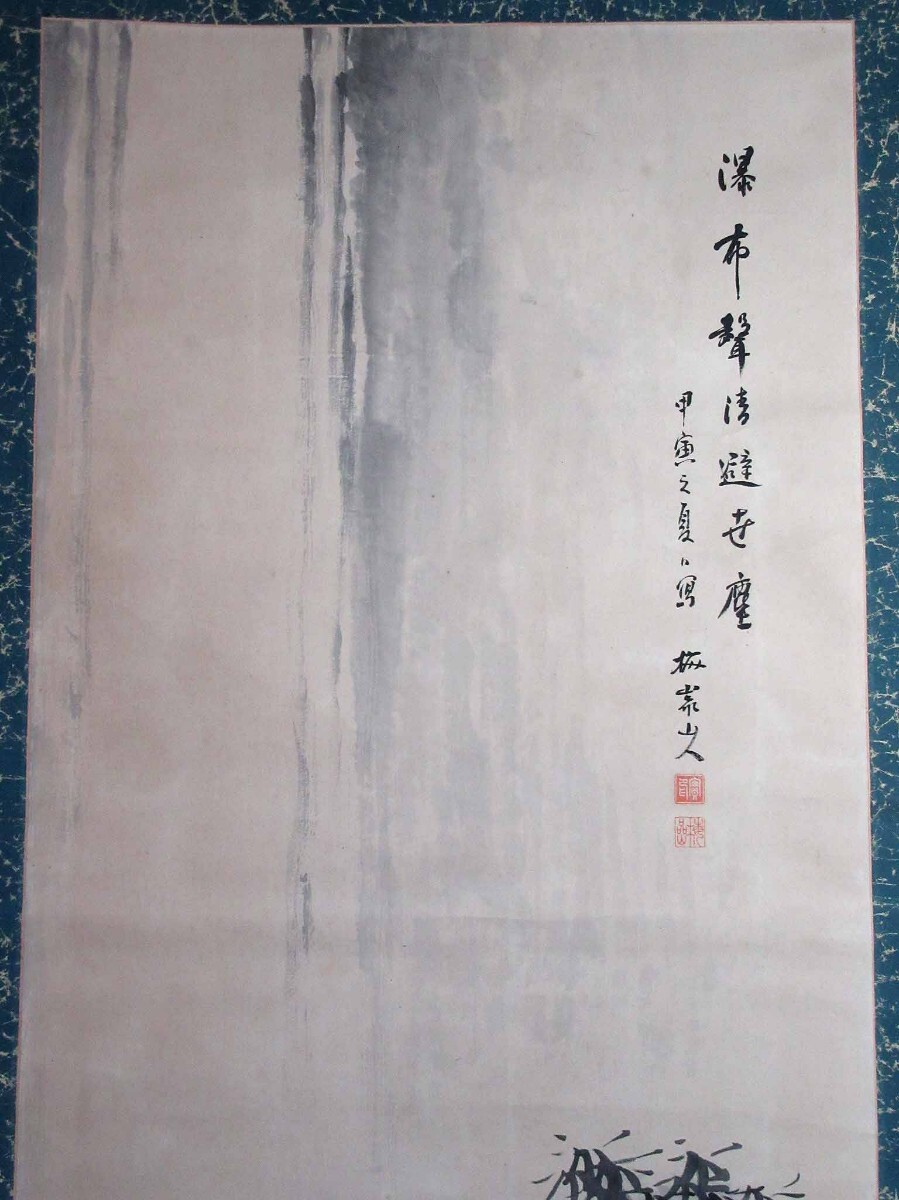 瀑布聲清避世塵
甲寅之夏日寫 梅崇山人